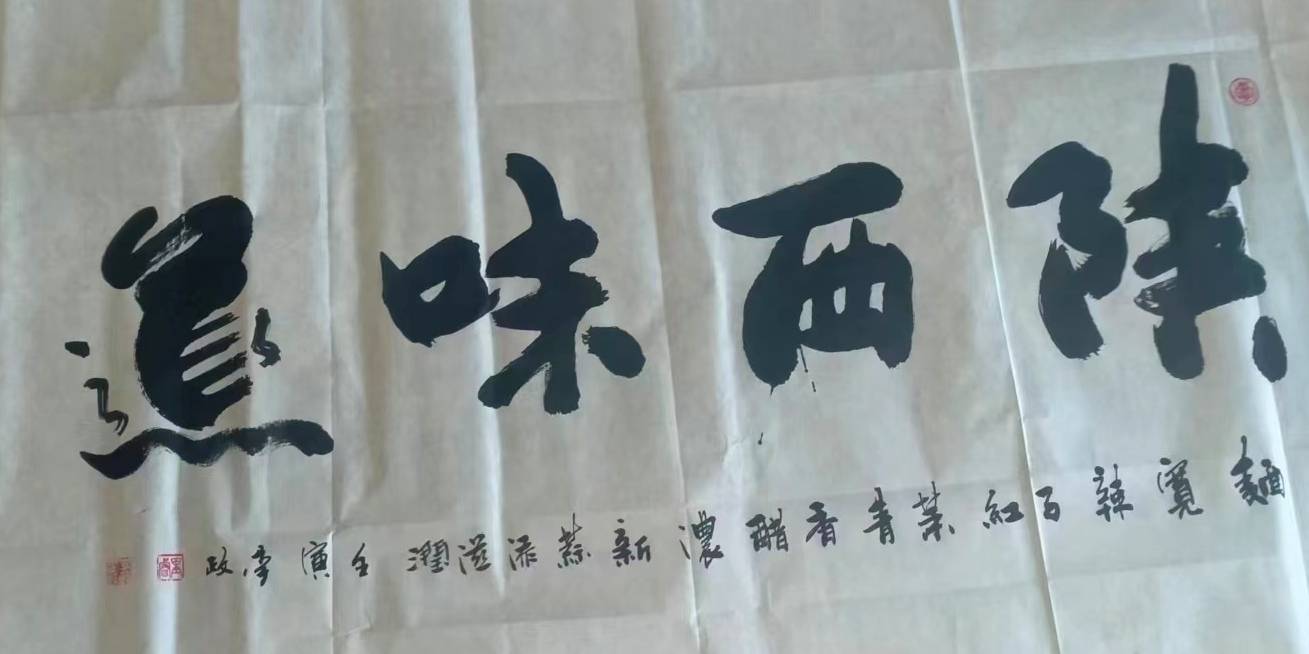 陕西味道
麵寬辣子紅菜青香醋濃新蒜添滋潤壬寅李政